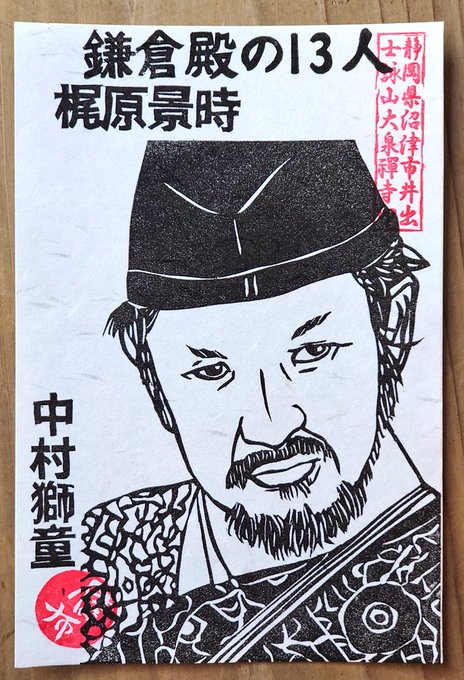 鎌倉殿の13人
梶原景時
静岡県沼津市井出
士詠山大泉禪寺
中村獅童